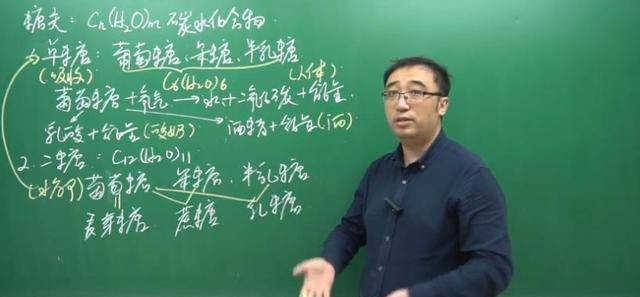 糖类: Cn(H2O)m 碳水化合物
1. 单糖: 葡萄糖、果糖、半乳糖
(吸收) C6(H2O)6 (人体)
葡萄糖+氧气→水+二氧化碳+能量.
乳酸+能量(酸奶) 酒精+能量(酒)
2. 二糖: C12(H2O)11
(水解) 葡萄糖 果糖、半乳糖
麦芽糖 蔗糖 乳糖